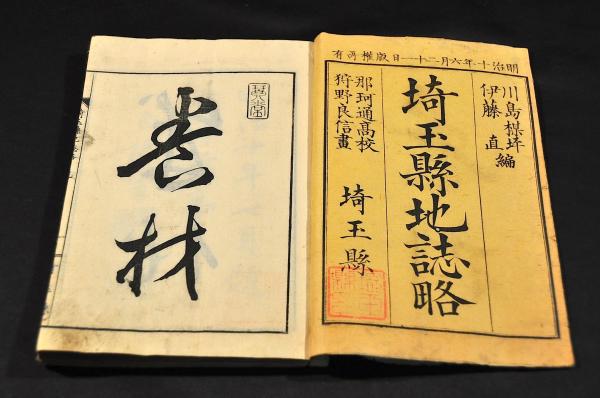 明治十年六月二十一日版權所有
川島楳坪
伊藤 直
編
埼玉縣地誌略
那珂通高校
狩野良信畫
埼玉縣
養材